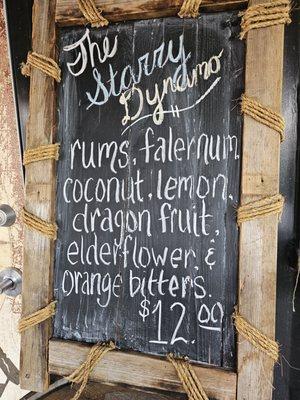 The
Starry
Dynamo
rums, falernum,
coconut, lemon,
dragon fruit,
elderflower, &
orange bitters.
$12.00